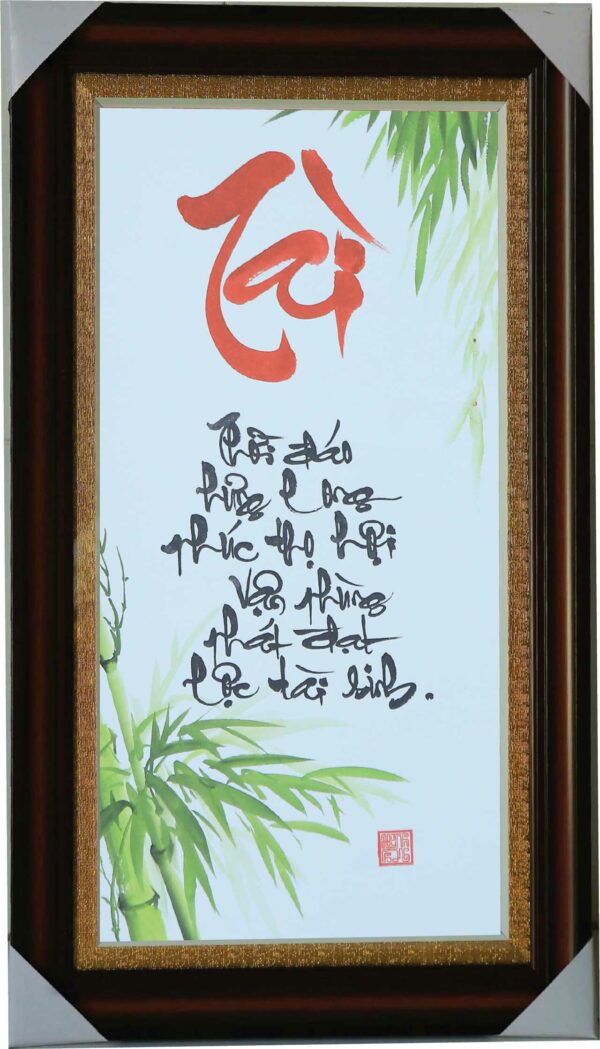 Tài
Thời đáo
hưng long
phúc thọ hội
Vận phùng
phát đạt
lộc tài sinh.